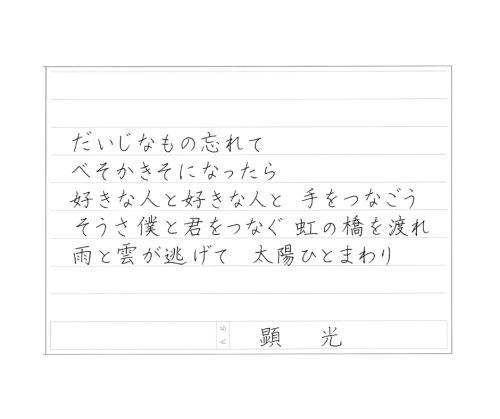 だいじなもの忘れて
べそかきそになったら
好きな人と好きな人と 手をつなごう
そうさ僕と君をつなぐ 虹の橋を渡れ
雨と雲が逃げて 太陽ひとまわり
氏名
顕 光